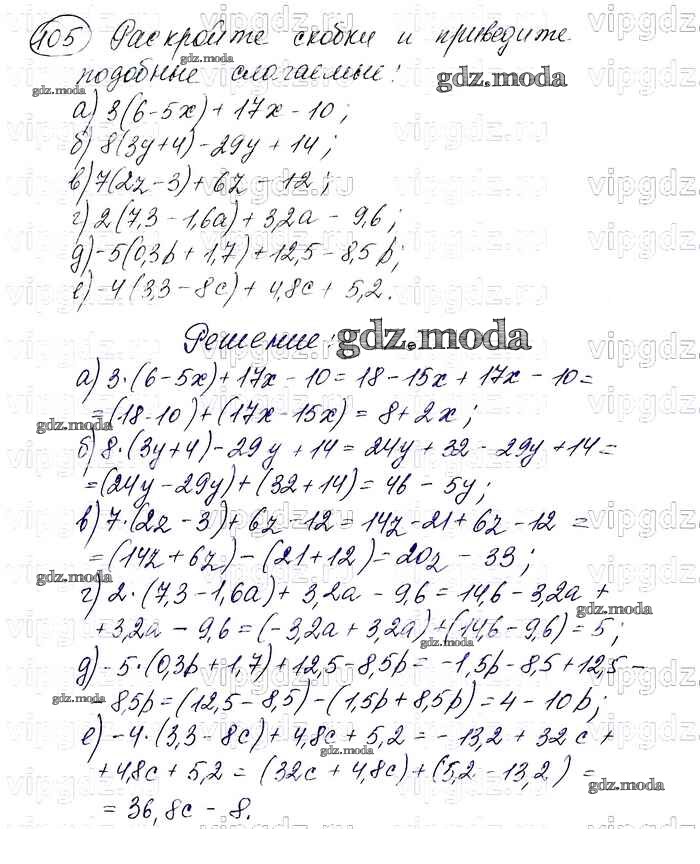 405 Раскройте скобки и приведите
подобные слагаемые:
gdz.moda
gdz.moda
а) 3(6-5x)+17x-10;
б) 8(3y+4)-29y+14;
в) 7(2z-3)+6z-12;
г) 2(7,3-1,6a)+3,2a-9,6;
д) -5(0,3p+1,7)+12,5-8,5p;
е) -4(3,3-8c)+4,8c+5,2.
Решение: gdz.moda
а) 3·(6-5x)+17x-10=18-15x+17x-10=
=(18-10)+(17x-15x)=8+2x;
gdz.moda
б) 8·(3y+4)-29y+14=24y+32-29y+14=
=(24y-29y)+(32+14)=46-5y;
в) 7·(2z-3)+6z-12=14z-21+6z-12=
=(14z+6z)-(21+12)=20z-33;
gdz.moda
г) 2·(7,3-1,6a)+3,2a-9,6=14,6-3,2a+
gdz.moda
+3,2a-9,6=(-3,2a+3,2a)+(14,6-9,6)=5;
gdz.moda
д) -5·(0,3p+1,7)+12,5-8,5p=-1,5p-8,5+12,5-
gdz.moda
-8,5p=(12,5-8,5)-(1,5p+8,5p)=4-10p;
е) -4·(3,3-8c)+4,8c+5,2=-13,2+32c+
gdz.moda
+4,8c+5,2=(32c+4,8c)+(5,2-13,2)=
gdz.moda
=36,8c-8.
vipgdz.ru